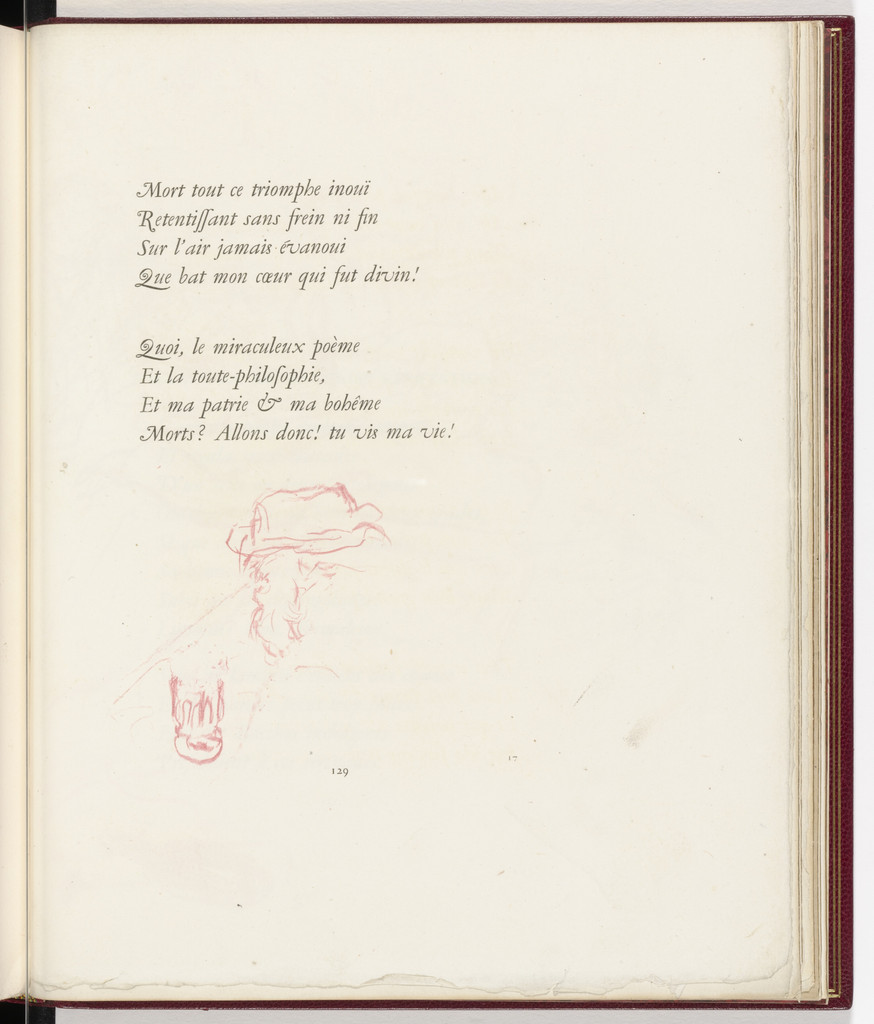 Mort tout ce triomphe inouï
Retentiſſant sans frein ni fin
Sur l'air jamais évanoui
Que bat mon cœur qui fut divin!
Quoi, le miraculeux poème
Et la toute-philoſophie,
Et ma patrie & ma bohême
Morts? Allons donc! tu vis ma vie!
129
17